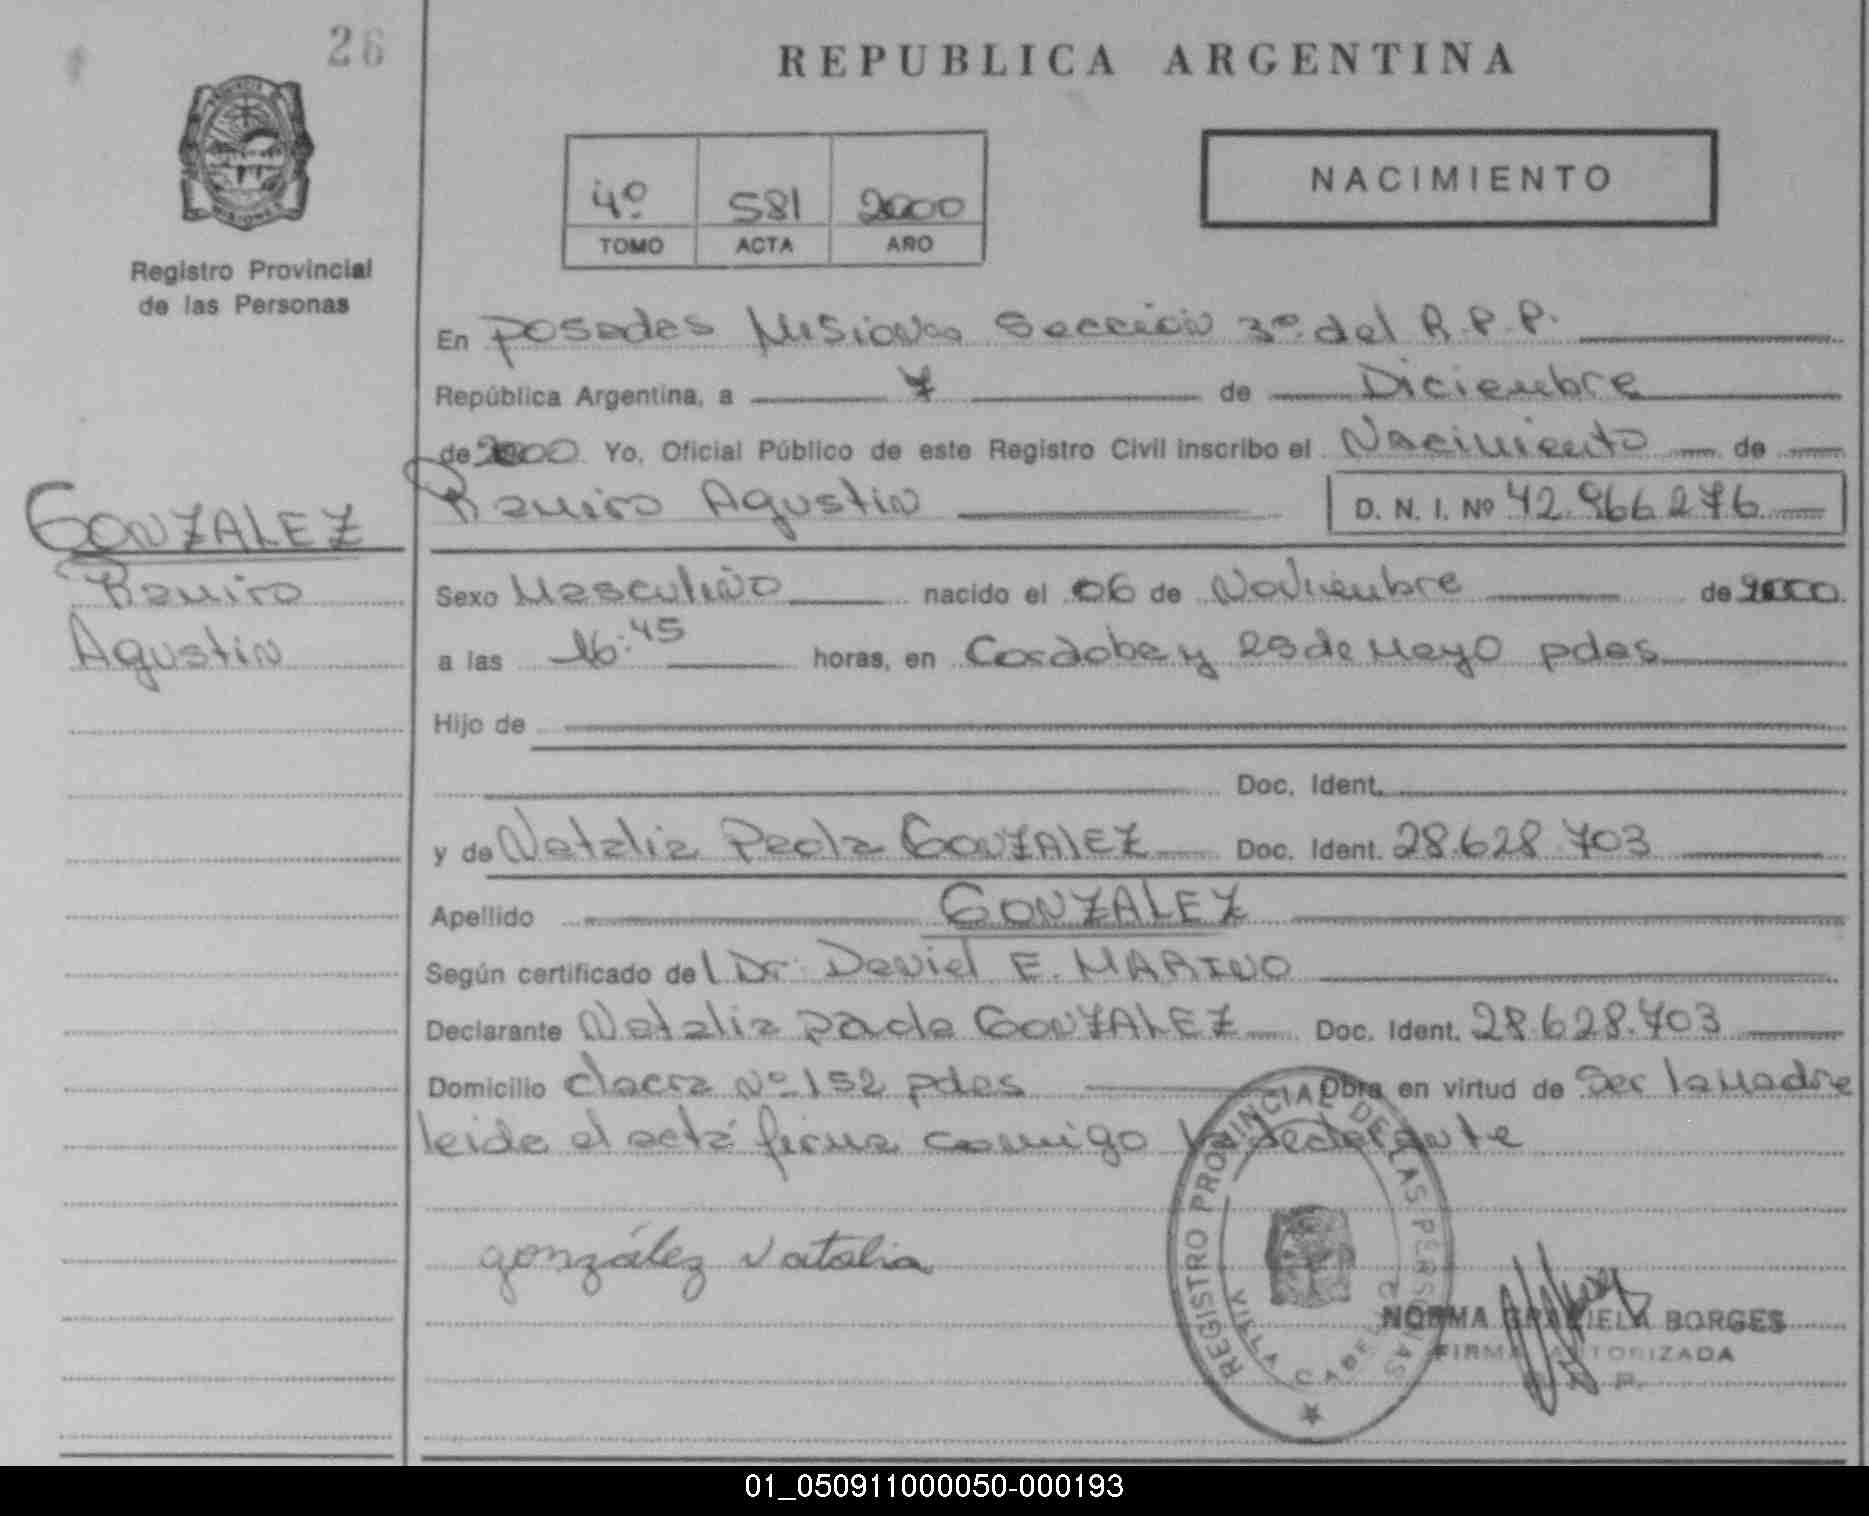 26
REPUBLICA ARGENTINA
NACIMIENTO
4º 581 2000
TOMO ACTA AÑO
Registro Provincial
de las Personas
En Posadas Misiones Sección 3º del R.P.P.
República Argentina, a 7 de Diciembre
de 2000 Yo, Oficial Público de este Registro Civil inscribo el Nacimiento de
Ramiro Agustin D. N. I. Nº 42.966.276
GONZALEZ
Ramiro
Agustin
Sexo Masculino nacido el 06 de Noviembre de 2000
a las 16:45 horas, en Cordoba y 25 de Mayo pdas
Hijo de
Doc. Ident.
y de Natalia Paola GONZALEZ Doc. Ident. 28.628.703
Apellido GONZALEZ
Según certificado del Dr. Daniel E. MARINO
Declarante Natalia Paola GONZALEZ Doc. Ident. 28.628.703
Domicilio chacra Nº 152 pdas Obra en virtud de Ser la Madre
leida el acta firma conmigo la declarante
REGISTRO PROVINCIAL DE LAS PERSONAS
VILLA CABELLO
gonzález Natalia
NORMA GRACIELA BORGES
FIRMA AUTORIZADA
01_050911000050-000193